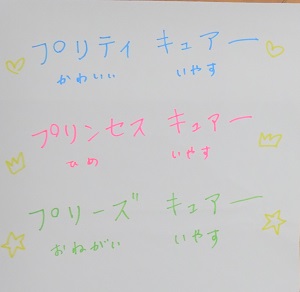 プリティ キュアー
かわいい いやす
プリンセス キュアー
ひめ いやす
プリーズ キュアー
おねがい いやす